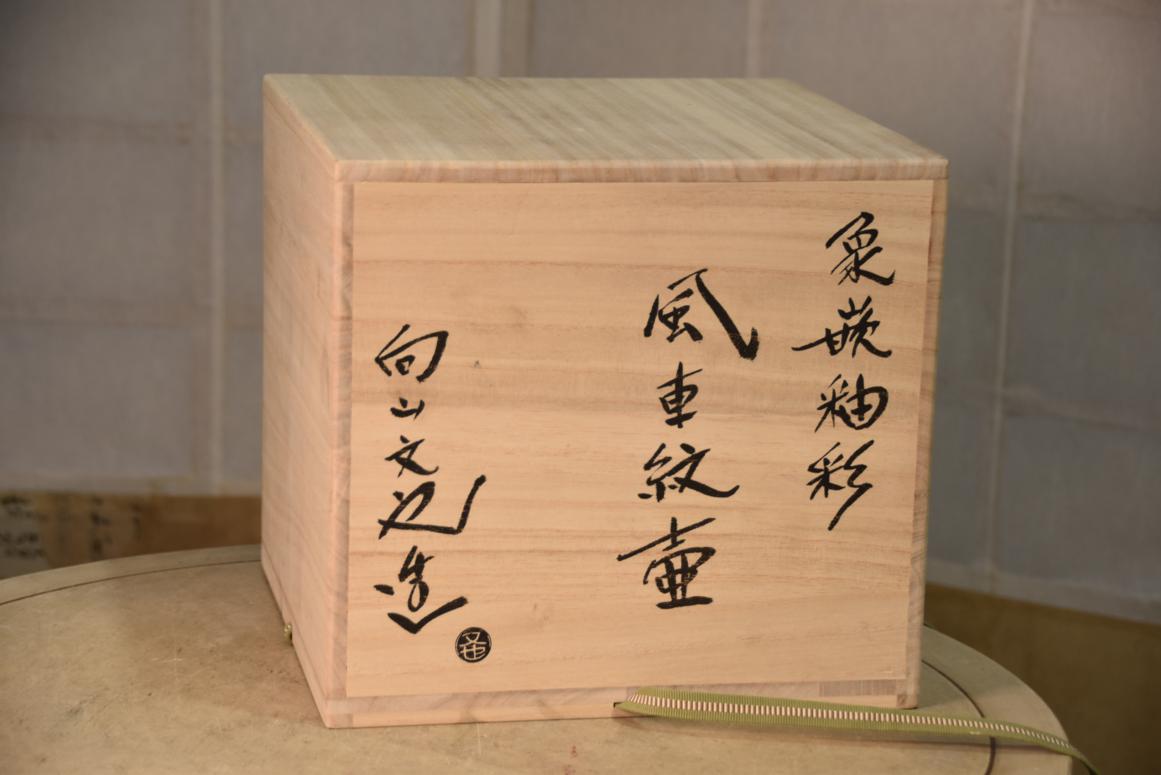 象嵌釉彩
風車紋壷
向山文也造